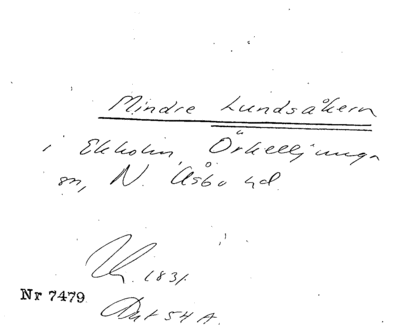 Mindre Lundsåkern
i Ekholm, Örkelljunga
sn, N. Åsbo hd.
1831
Nr 7479
Akt 54 A.